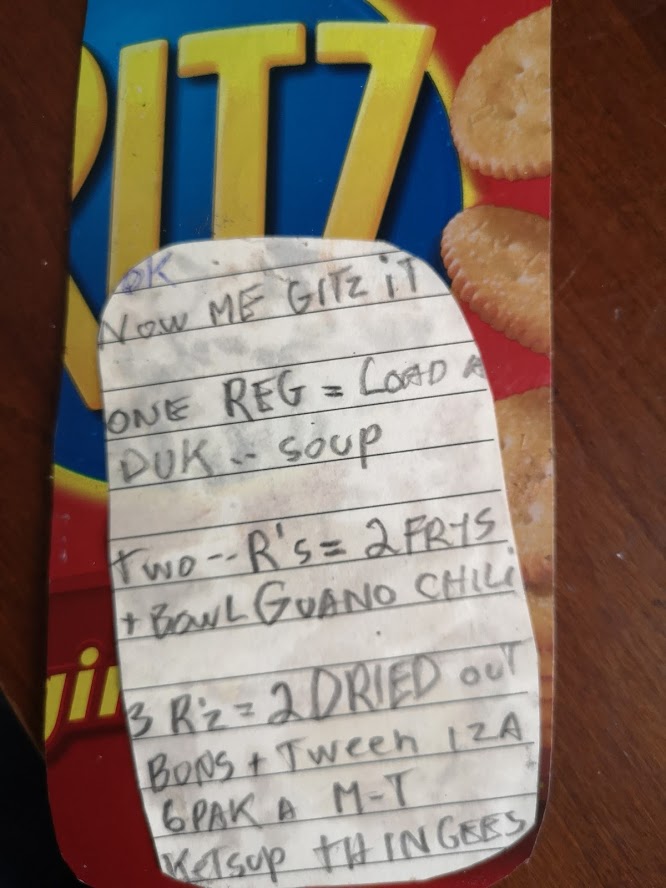 RITZ
OK
NOW ME GITZ iT
ONE REG = LOAD A
DUK -- SOUP
TWO -- R's = 2 FRYS
+ BOWL GUANO CHILi
3 R'z = 2 DRIED OUT
BONS + TWEEN IZ A
6PAK A M-T
KETSUP THINGEES